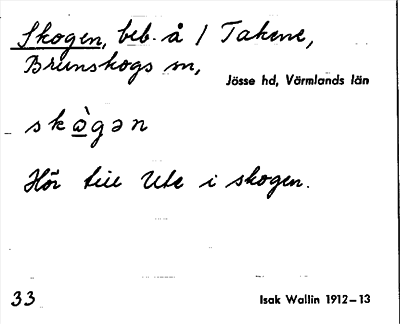 Skogen, beb. å 1 Takene,
Brunskogs sn,
Jösse hd, Värmlands län
skɷ̀gən
Hör till Ute i skogen.
33
Isak Wallin 1912–13